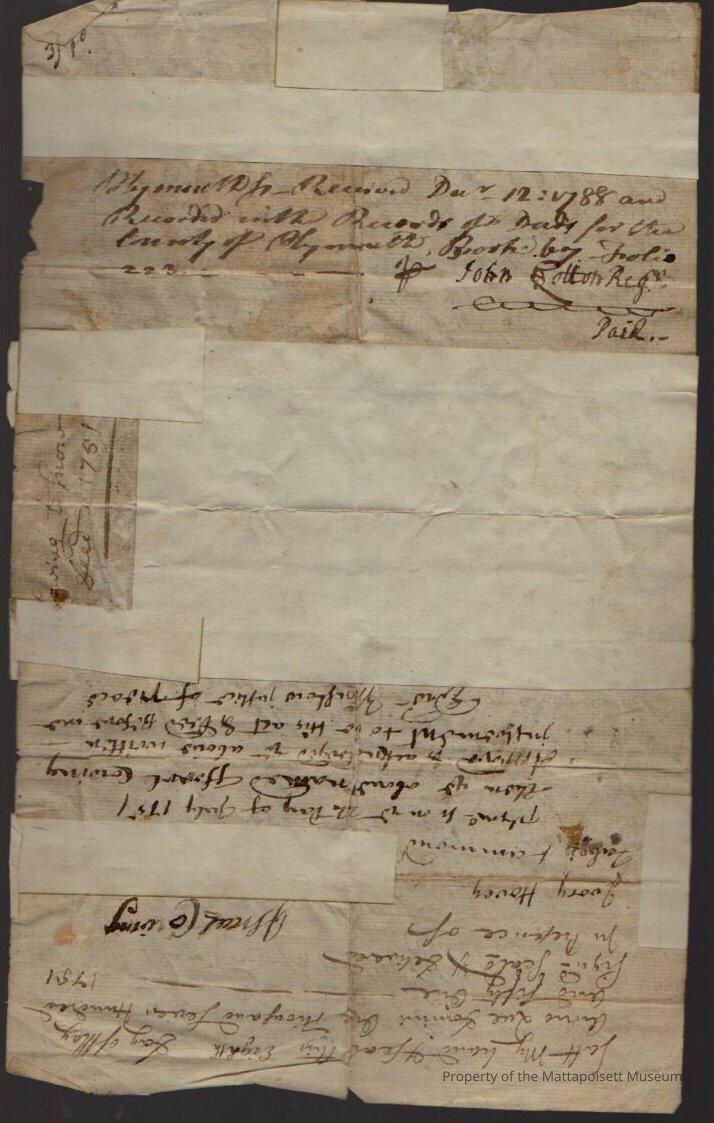 3/10.
Plymouth Ss Received Decr. 12: 1788 and
Recorded with Records of Deeds for the
County of Plymouth, Book: 69 Folio
223
John Cotton Regr.
Paid.-
Ewing to
Deed 1751
Sett My hand & Seal this Eighth Day of May
Anno Que Domini One Thousand Seven Hundred
and fifty One 1751
Sign'd Seal'd & Deliver'd
in Presence of
Israel Ewing
Ivory Hovey
Hammond
on ye 22 Day of July 1751
Then ye above named Israel Ewing
Appeared & acknowledged ye above written
instrument to be his act & Deed Before me
Edwd. Winslow justice of peace
Property of the Mattapoisett Museum